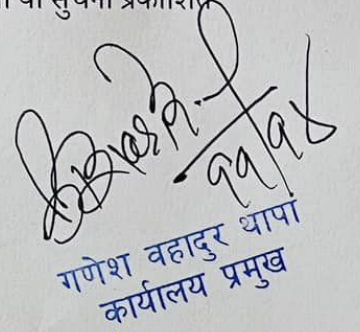 सुचना प्रकाशित
११/१४
गणेश वहादुर थापा
कार्यालय प्रमुख